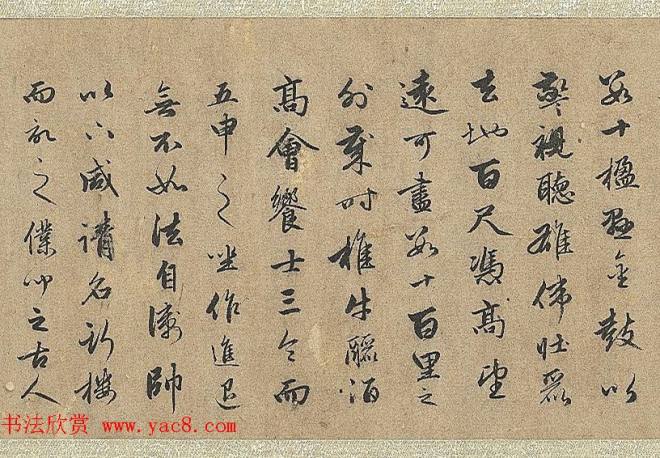 數十楹懸金鼓以
警視聽雄偉壯麗
去地百尺憑高望
遠可盡數十百里之
外歲時椎牛釃酒
高會饗士三令而
五申之坐作進退
無不如法自衛帥
以下咸請名樓
而記之僕聞之古人
书法欣赏 www.yac8.com